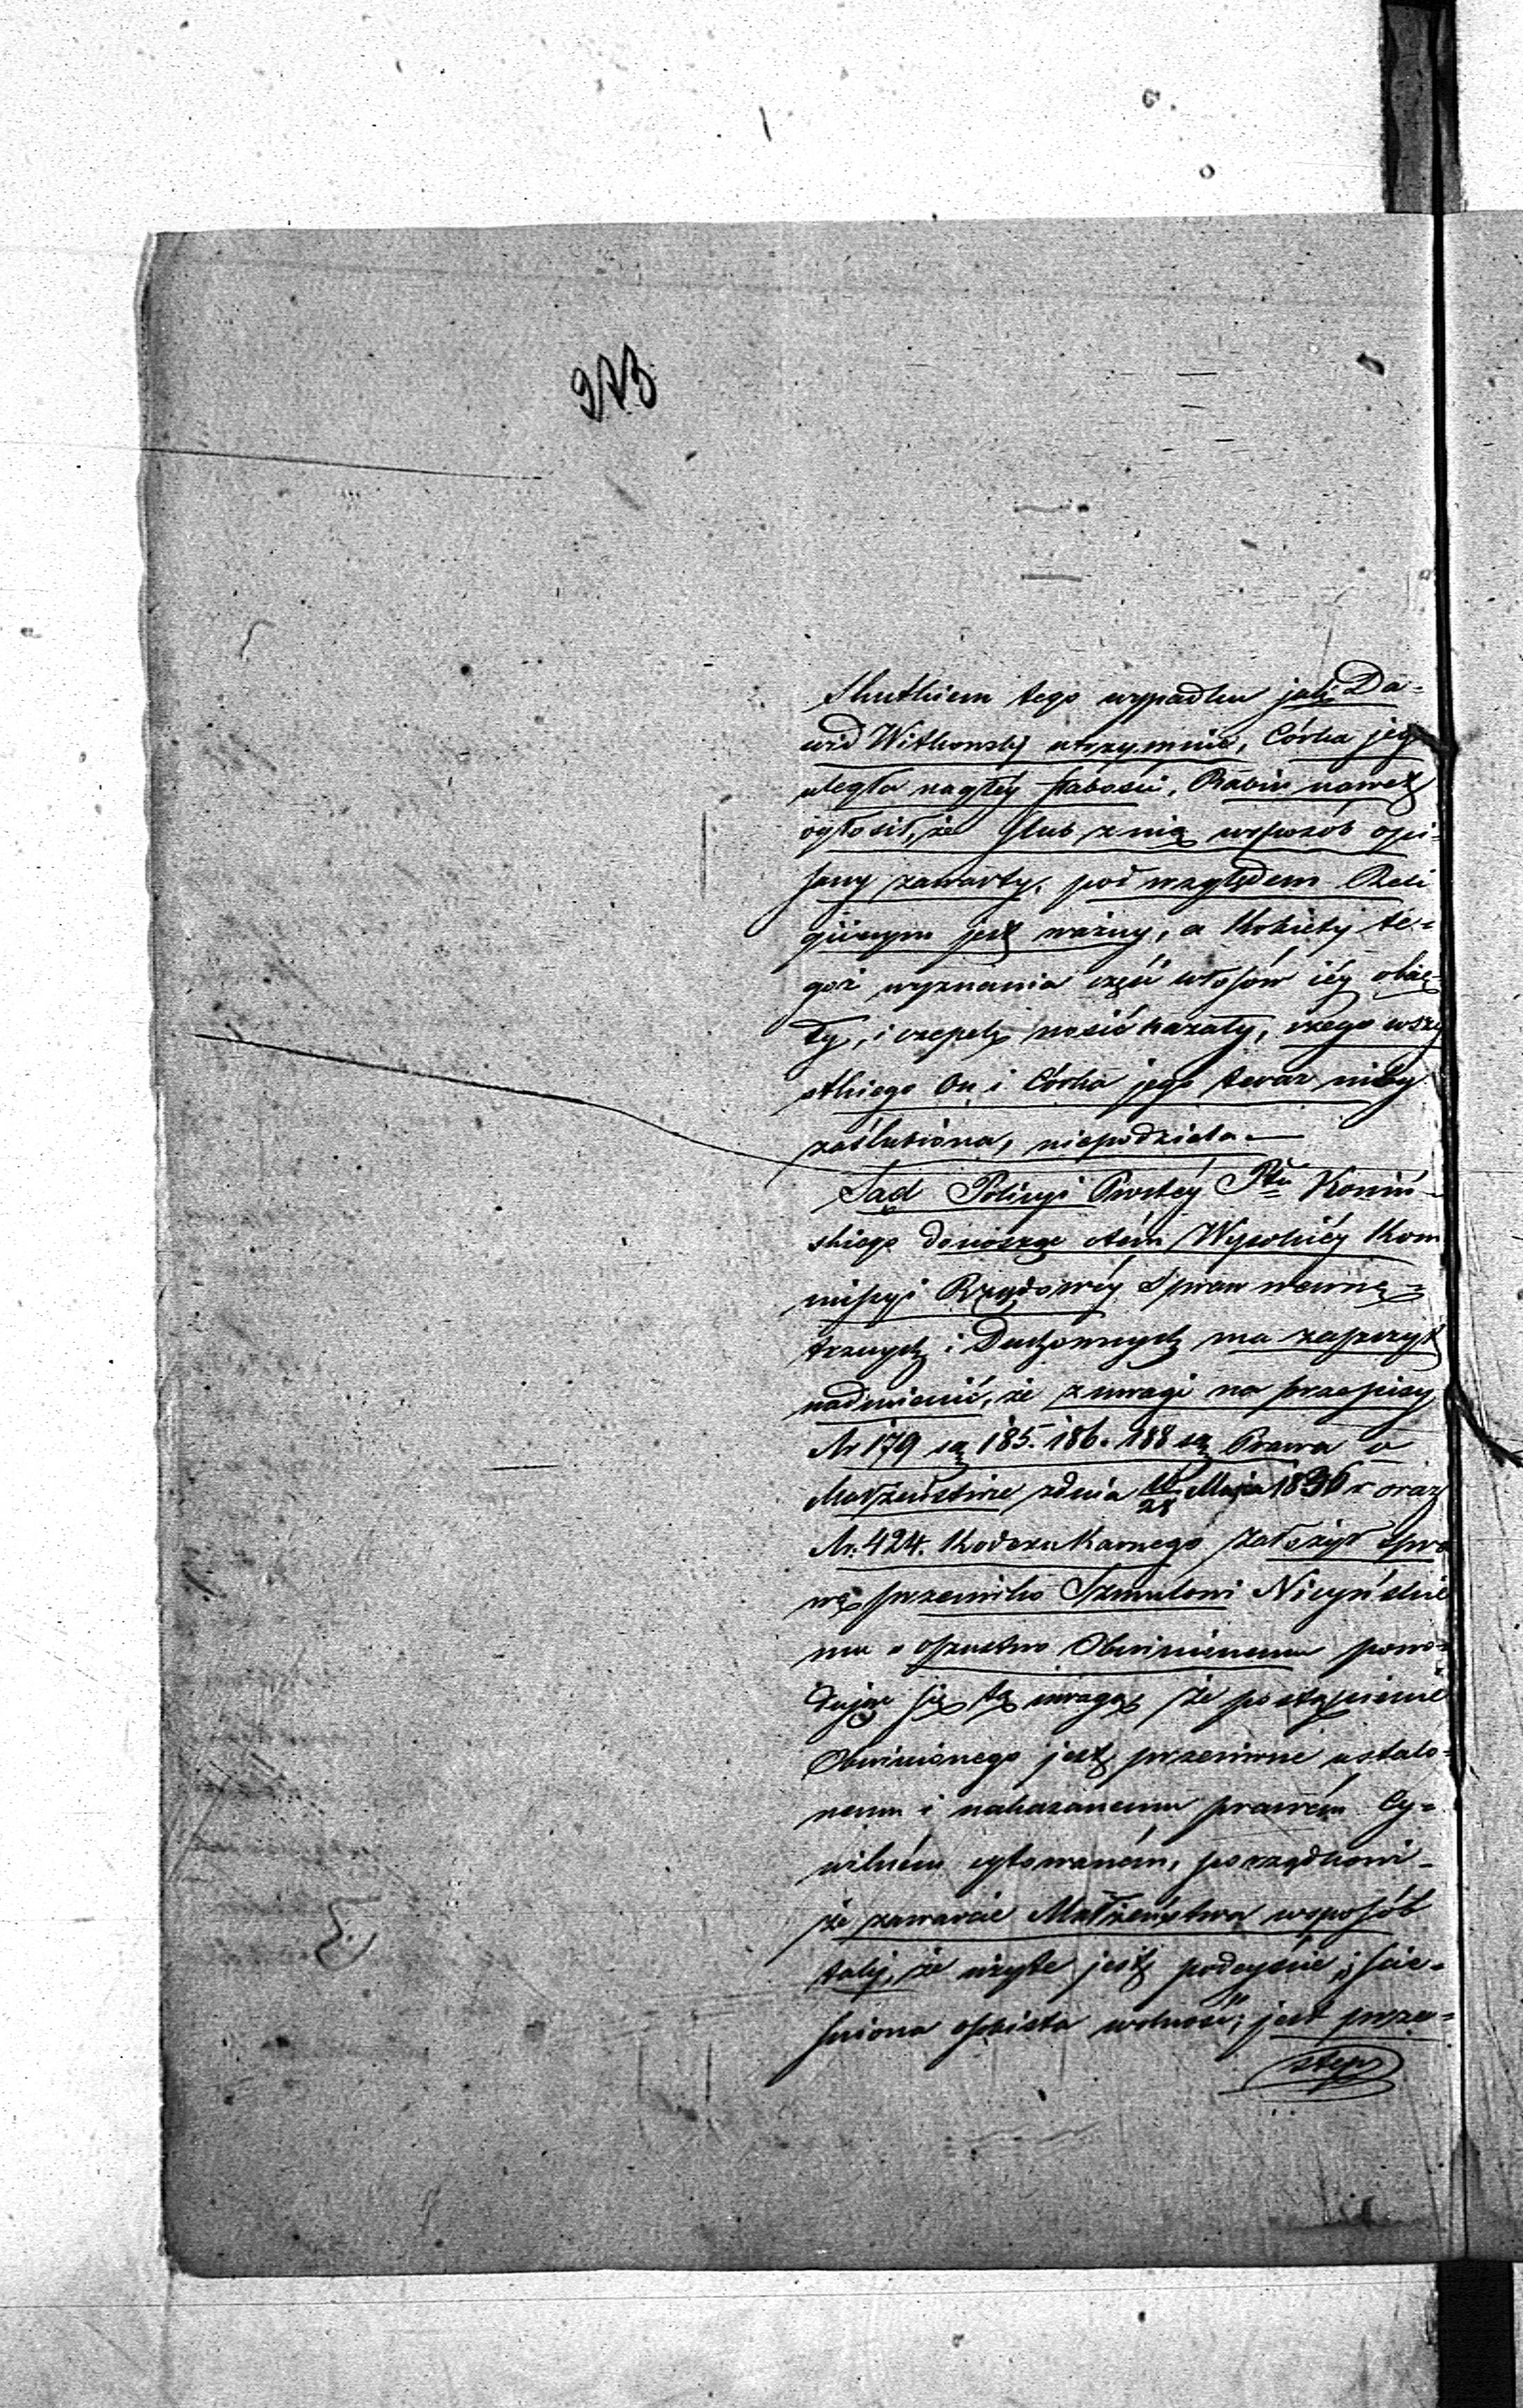 273
Skutkiem tego wypadku jak Da-
wid Witkowski utrzymuie, Córka jego
uległa nagłéy słabości, Rabin nawet
ogłosił, że ślub z nią wsposób opi-
sany zawarty, pod względem Reli
giinym jest ważny, a Kobiéty te-
goż wyznania część włosów iéy obcię-
ły, i czepek nosić kazały, czego wszy
stkiego On i Córka jego teraz niby
zaślubiona, niepodziela.—
Sąd Policyi Prostéy Ptu Koniń-
skiego donosząc otém Wysokiéy Kom
missyi Rządowéy Spraw wewnę-
trznych i Duchownych ma zaszczyt
nadmienić, że z uwagi na przepisy
Ar 179 są 185. 186. 188 są Prawa o
Małżeństwie zdnia 16/28 Maja 1836 r oraz
Ar. 424. Kodexu Karnego założył spra
wę przeciwko Szmulowi
mu o oszustwo Obwinionemu powo-
dując się tą uwagą, że postąpienie
Obwinionego jest przeciwne ustalo-
nemu i nakazanemu prawém Cy-
wilném cytowaném, porządkowi-
że zawarcie Małżeństwa wsposób
taki, że użyte jest podeyście i ście-
śniona osobista wolność; jest prze-
stęp